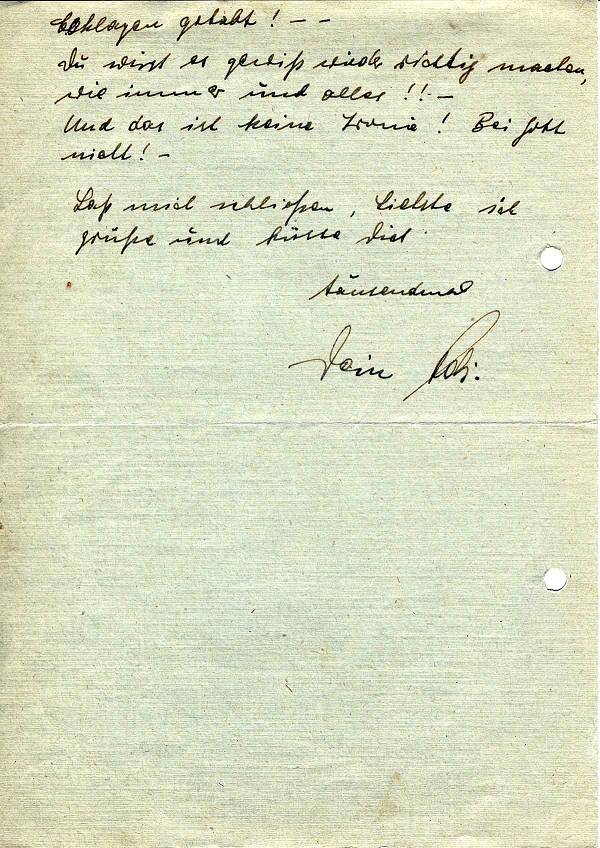 beklagen gehabt! – –
Du wirst es gewiß wieder richtig machen,
wie immer und alles!! –
Und das ist keine Ironie! Bei Gott
nicht! –
Laß mich schließen, Liebste ich
grüße und küsse Dich
tausendmal
Dein